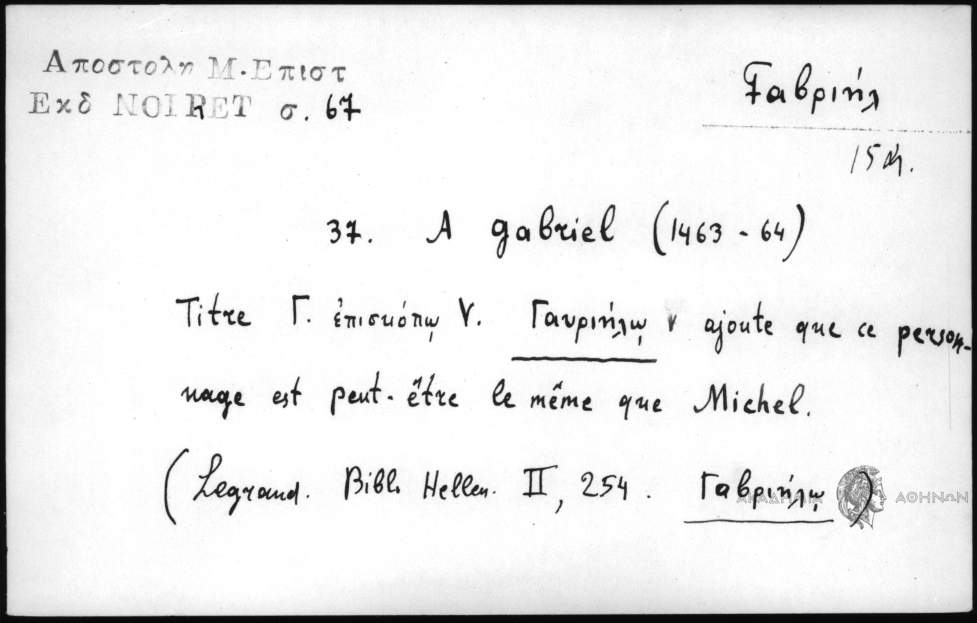 Αποστολη Μ. Επιστ
Εκδ NOIRET σ. 67
Γαβριήλ
37. A Gabriel (1463-64)
Titre Γ. ἐπισκόπῳ V. Γαυριήλῳ v ajoute que ce person-
nage est peut-être le même que Michel.
(Legrand. Bibl. Hellen. II, 254. Γαβριήλῳ)
ΑΚΑΔΗΜΙΑ ΑΘΗΝΩΝ